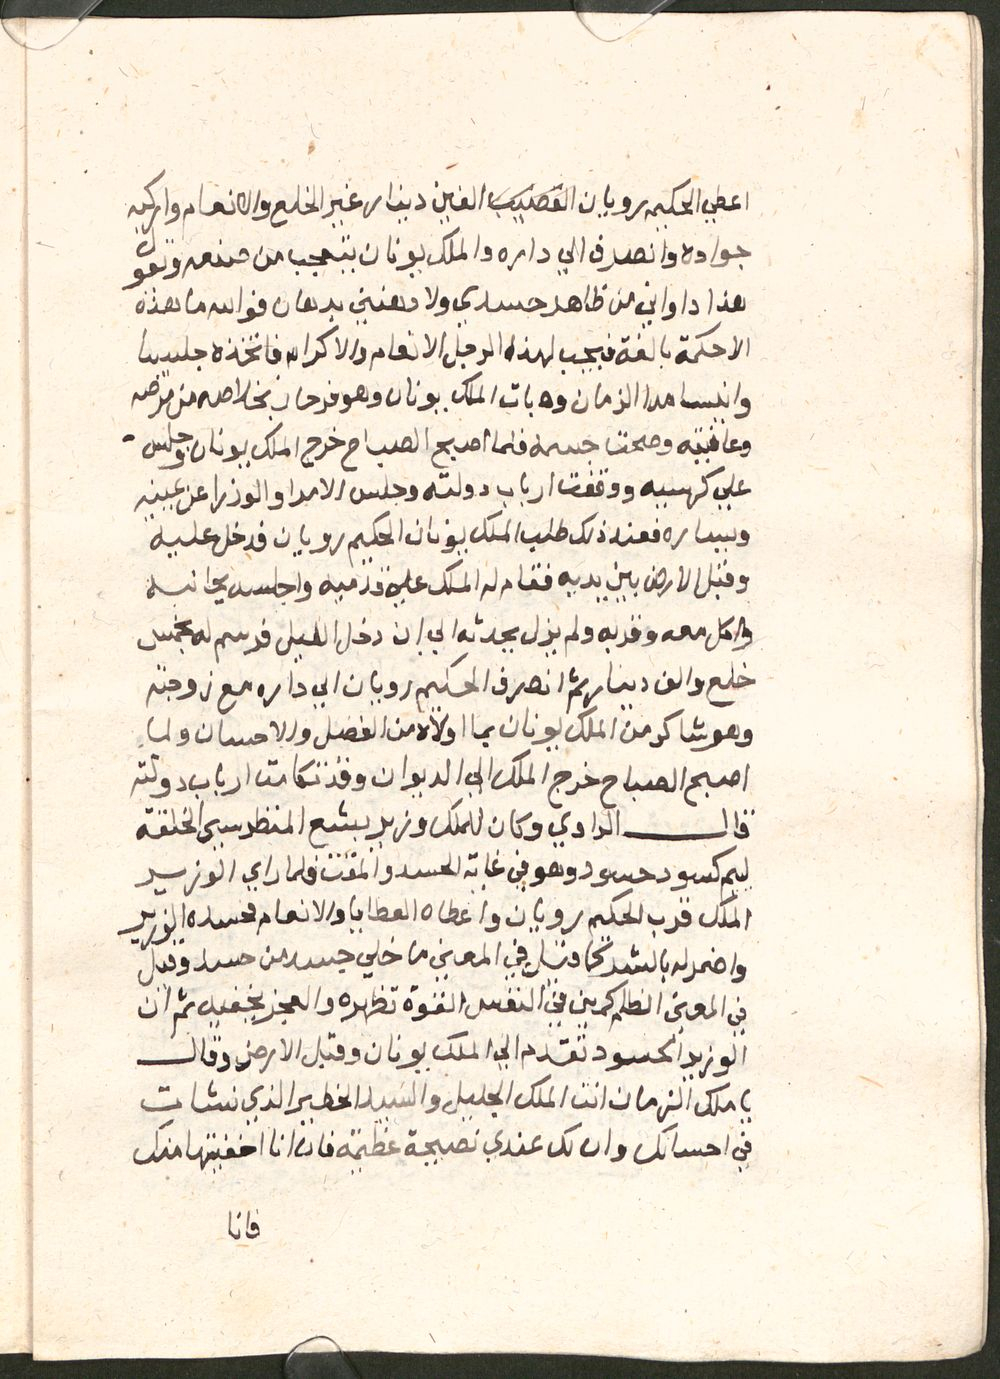 اعطي الحكيم رويان القضيب الفين دينار غير الخلع والانعام واركبه
جواده وانصرف الي داره والملك يونان يتعجب من صنعه ويقول
هذا داواني من ظاهر جسدي ولا دهنني بدهان فوالله ما هذه
الا حكمة بالغة فيجب لهذا الرجل الانعام والاكرام فاتخذه جليسا
وانيسا مدا الزمان وبات الملك يونان وهو فرحان بخلاصه من مرضه
وعافيته وصحت جسمه فلما اصبح الصباح خرج الملك يونان وجلس
علي كرسيه ووقفت ارباب دولته وجلس الامرا والوزرا عن يمينه
ويساره فعند ذلك طلب الملك يونان الحكيم رويان فدخل عليه
وقبل الارض بين يديه فقام له الملك علي قدميه واجلسه بجانبه
واكل معه وقربه ولم يزل يحدثه الي ان دخل الليل فرسم له بخمس
خلع والف دينار ثم انصرف الحكيم رويان الي داره مع زوجته
وهو شاكر من الملك يونان بما اولاه من الفضل والاحسان ولما
اصبح الصباح خرج الملك الي الديوان وقد تكامت ارباب دولته
قال الراوي وكان للملك وزير بشع المنظر سيي الخلقة
ليم كسود حسود وهو في غاية الحسد والمقت فلما راي الوزير
الملك قرب الحكيم رويان واعطاه العطايا والانعام فحسده الوزير
واضمر له بالشر كما قيل في المعني ما خلي جسد من حسد وقيل
في المعني الظلم كمين في النفس القوة تظهره والعجز يخفيه ثم ان
الوزير الحسود تقدم الي الملك يونان وقبل الارض وقال
يا ملك الزمان انت الملك الجليل والسيد الخطير الذي نشات
في احسانك وان لك عندي نصيحة عظيمة فان انا اخفيتها منك
فانا